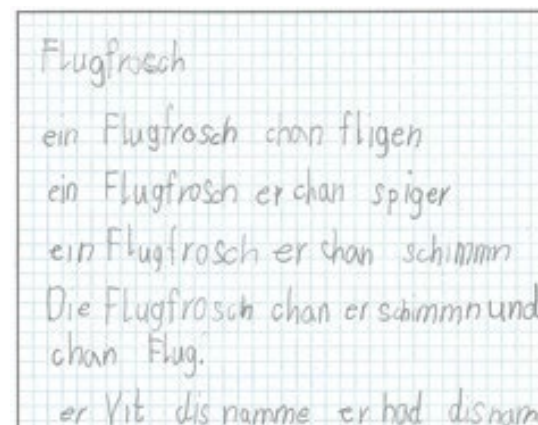 Flugfrosch
ein Flugfrosch chan fligen
ein Flugfrosch er chan spiger
ein Flugfrosch er chan schimmn
Die Flugfrosch chan er schimmn und
chan Flug.
er Vit dis namme er hod disnam